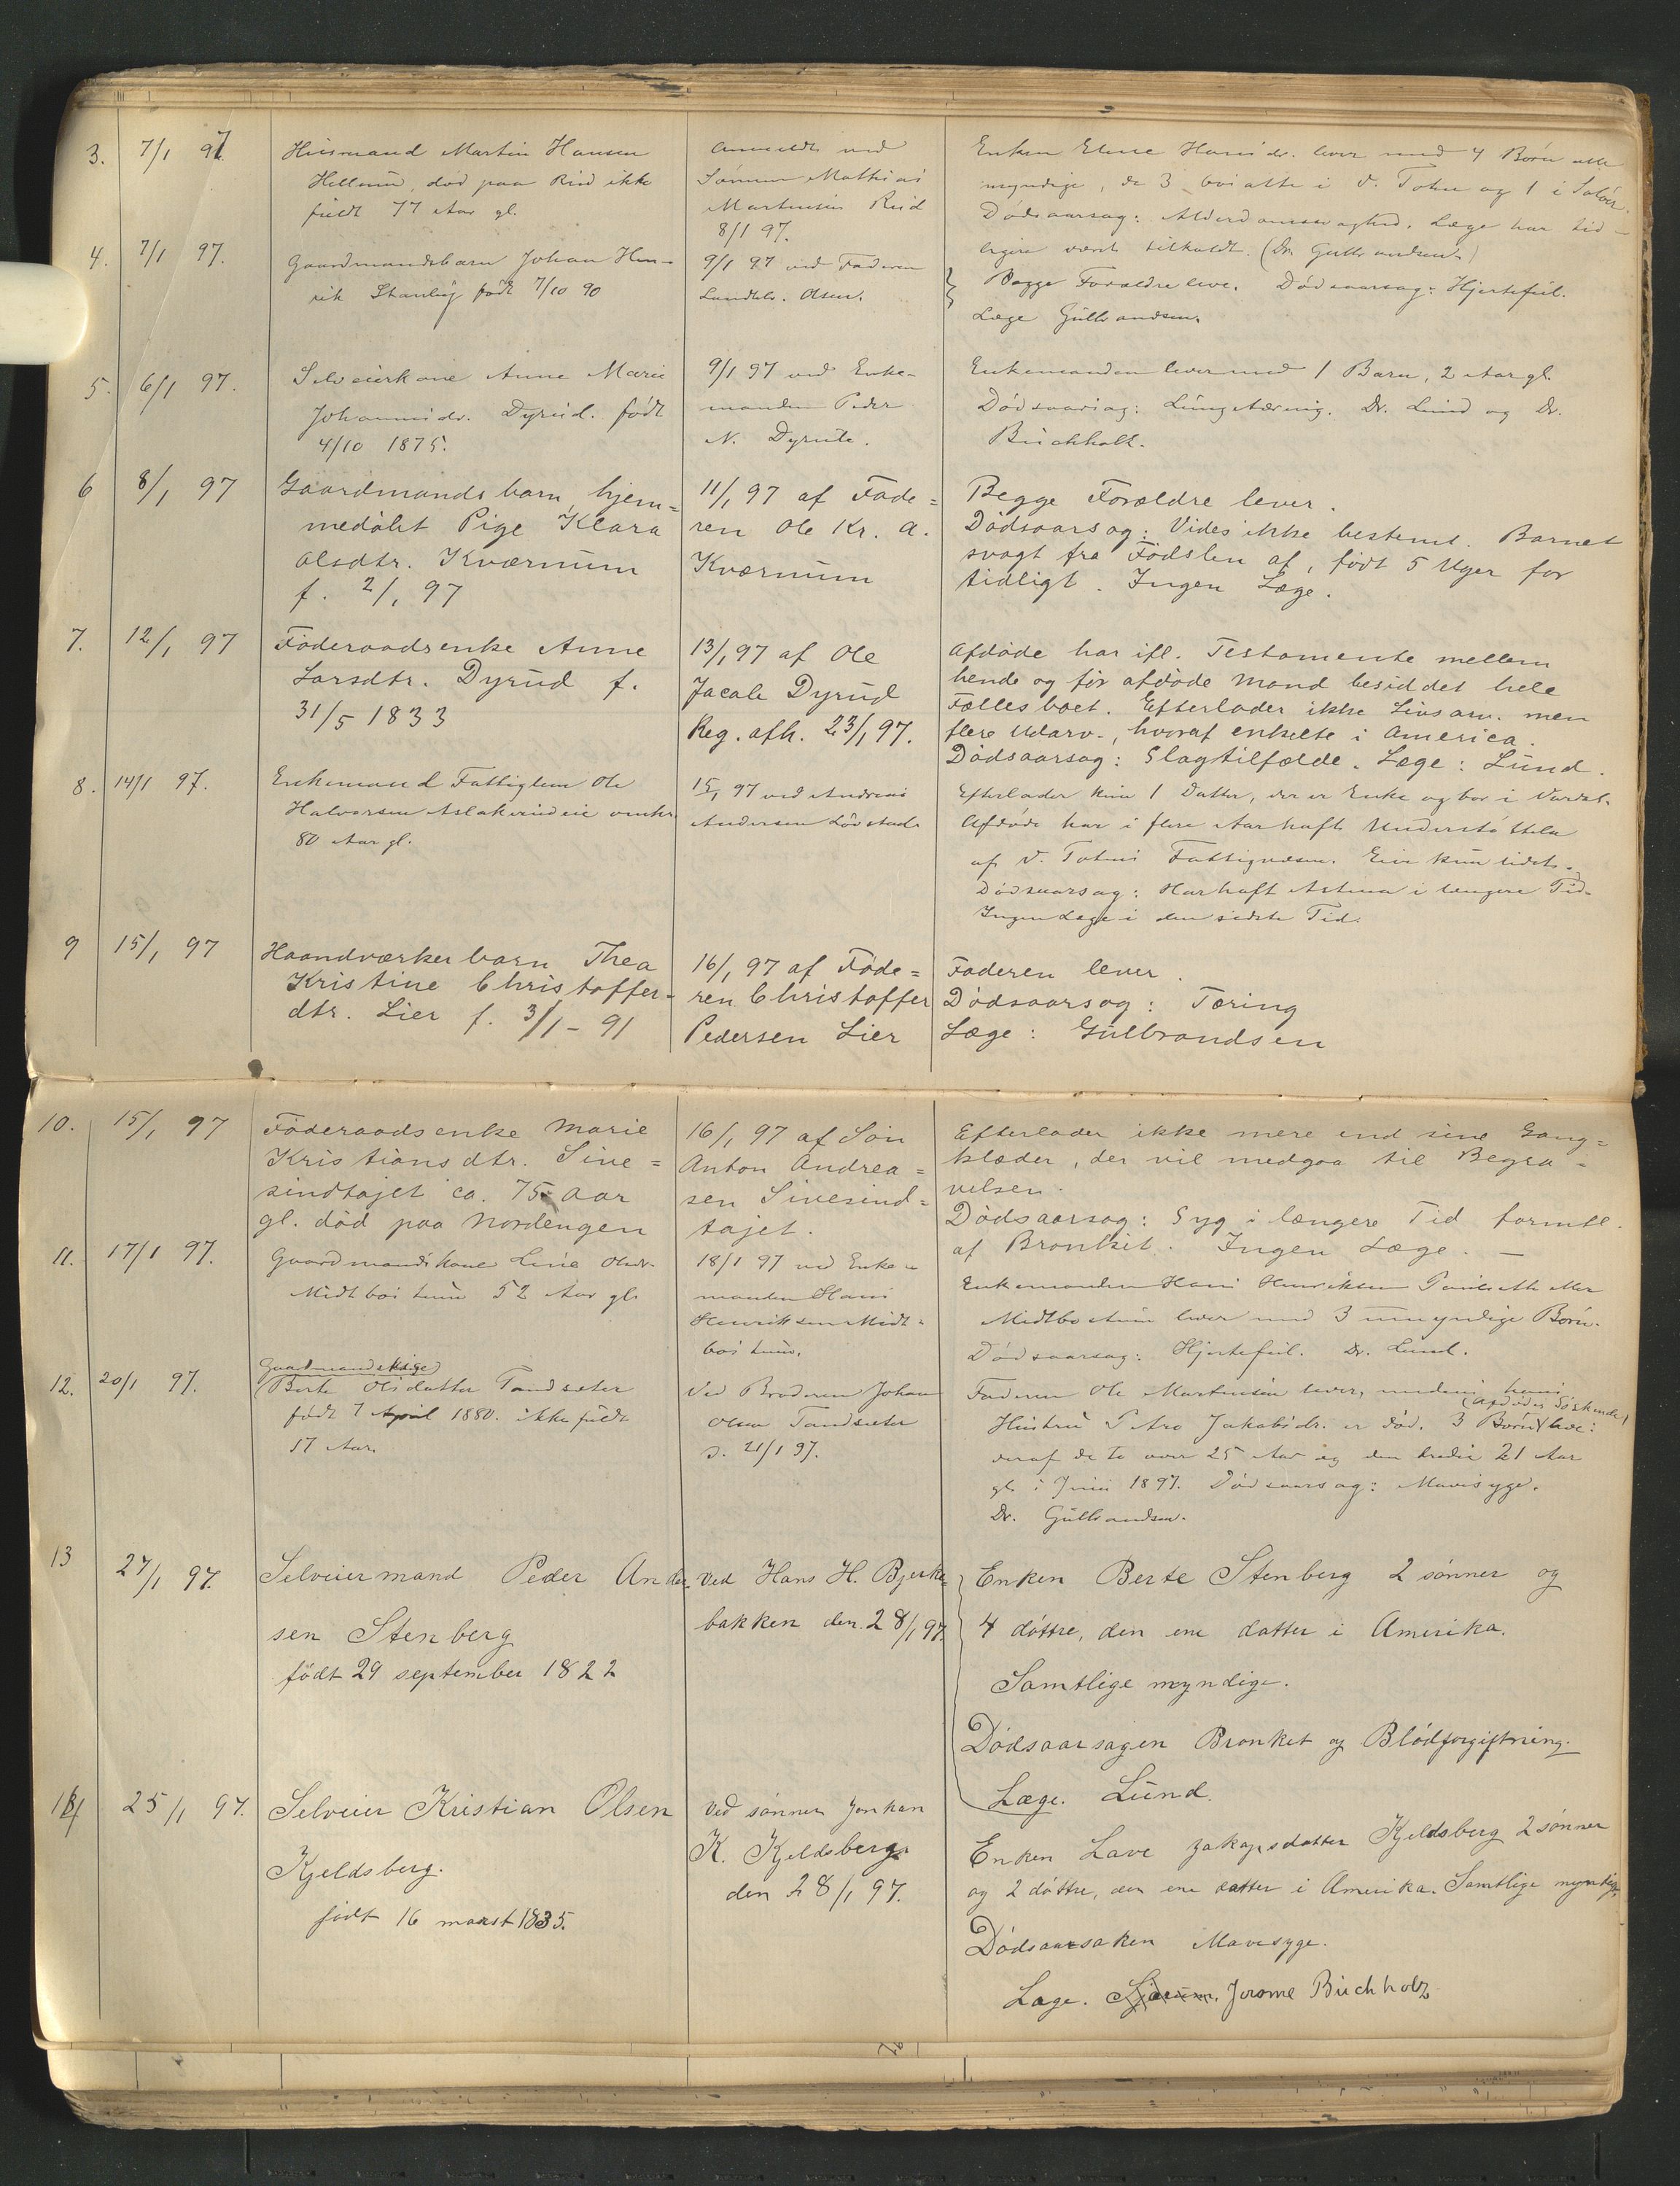 3. 7/1 97. Husmand Martin Hansen
Hellum, død paa Rud ikke
fuldt 77 Aar gl.
Anmeldt ved
Sønnen Mathias
Martinsen Rud
8/1 97.
Enken Eline Hansdr. lever med 4 Børn alle
myndige, de 3 bosatte i V. Toten og 1 i Solør.
Dødsaarsag: Alderdomssvaghed. Læge har tid-
ligere været tilkaldt. (Dr. Gulbrandsen.)
4. 7/1 97. Gaardmandsbarn Johan Hen-
rik Stanlig født 7/10 90
9/1 97 ved Faderen
Olsen.
Begge Forældre leve. Dødsaarsag: Hjertefeil.
Læge Gulbrandsen.
5. 6/1 97. Selveierkone Anne Marie
Johannisdr. Dyrud. født
4/10 1875.
9/1 97 ved Enke-
manden Peder
N. Dyrud.
Enkemanden lever med 1 Barn, 2 Aar gl.
Dødsaarsag: Lungetæring. Dr. Lund og Dr.
Buchholt.
6 8/1 97 Gaardmandsbarn, hjem=
medøbt Pige Klara
Olsdtr. Kværnum
f. 2/1 97
11/1 97 af Fade=
ren Ole Kr. A.
Kværnum
Begge Forældre lever.
Dødsaarsag: Vides ikke bestemt. Barnet
svagt fra Fødslen af, født 5 Uger for
tidligt. Ingen Læge.
7. 12/1 97 Føderaadsenke Anne
Larsdtr. Dyrud f.
31/5 1833
13/1 97 af Ole
Jacob Dyrud
Reg. afh. 23/1 97.
Afdøde har ifl. Testamente mellem
hende og før afdøde Mand besiddet hele
Fællesboet. Efterlader ikke Livsarv. men
flere Udarv., hvoraf enkelte i America.
Dødsaarsag: Slagtilfælde. Læge: Lund.
8. 14/1 97. Enkemand Fattiglem Ole
Halvorsen Aslakrudeie omkr.
80 Aar gl.
15/1 97 ved Andreas
Andersen Løvstad
Efterlader kun 1 Datter, der er Enke og bor i Vardal.
Afdøde har i flere Aar havt Understøttelse
af V. Totens Fattigvæsen. Eier kun lidet.
Dødsaarsag: Har havt Astma i længere Tid.
Ingen Læge i den sidste Tid.
9 15/1 97 Haandværkerbarn Thea
Kristine Christoffer-
dtr. Lier f. 3/1 - 91
16/1 97 af Fade=
ren Christoffer
Pedersen Lier
Faderen lever.
Dødsaarsag: Tæring
Læge: Gulbrandsen
10. 15/1 97 Føderaadsenke Marie
Kristiansdtr. Sive=
sindtajet ca. 75 Aar
gl. død paa Nordengen
16/1 97 af Søn
Anton Andrea=
sen Sivesind=
tajet.
Efterlader ikke mere end sine Gang=
klæder, der vil medgaa til Begra=
velsen.
Dødsaarsag: Syg i længere Tid formtl.
af Bronkit. Ingen Læge. —
11. 17/1 97. Gaardmandskone Line Olsdr.
Midtbøistuen 52 Aar gl.
18/1 97 ved Enke=
manden Hans
Henriksen Midt=
bøistuen.
Enkemanden Hans Henriksen
Midtbøstuen lever med 3 umyndige Børn.
Dødsaarsag: Hjertefeil. Dr. Lund.
12. 20/1 97. Gaardmandspige
Berte Olsdatter Tandsæter
født 7 April 1880. ikke fuldt
17 Aar.
Ved Broderen Johan
Olsen Tandsæter
d. 21/1 97.
Faderen Ole Martinsen lever, medens hans
Hustru Petra Jakobsdr. er død. 3 Børn (Afdødes Søskende) leve:
deraf de to over 25 Aar og den tredie 21 Aar
gl. i Juni 1897. Dødsaarsag: Mavesyge.
Dr. Gulbrandsen.
13 27/1 97. Selveiermand Peder Ander
sen Stenberg
født 29 september 1822
Ved Hans H. Bjerke-
bakken den 28/1 97.
Enken Berte Stenberg 2 sønner og
4 døttre, den ene datter i Amerika.
Samtlige myndige.
Dødsaarsagen Bronket og Blodforgiftning.
Læge. Lund.
14 25/1 97. Selveier Kristian Olsen
Kjeldsberg.
født 16 marst 1835.
Ved sønnen Jonhan
K. Kjeldsberg
den 28/1 97.
Enken Lave Jakapsdatter Kjeldsberg 2 sønner
og 2 døttre, den ene datter i Amerika. Samtlige myndige,
Dødsaarsaken Mavesyge.
Læge. Jerome Buchholz.